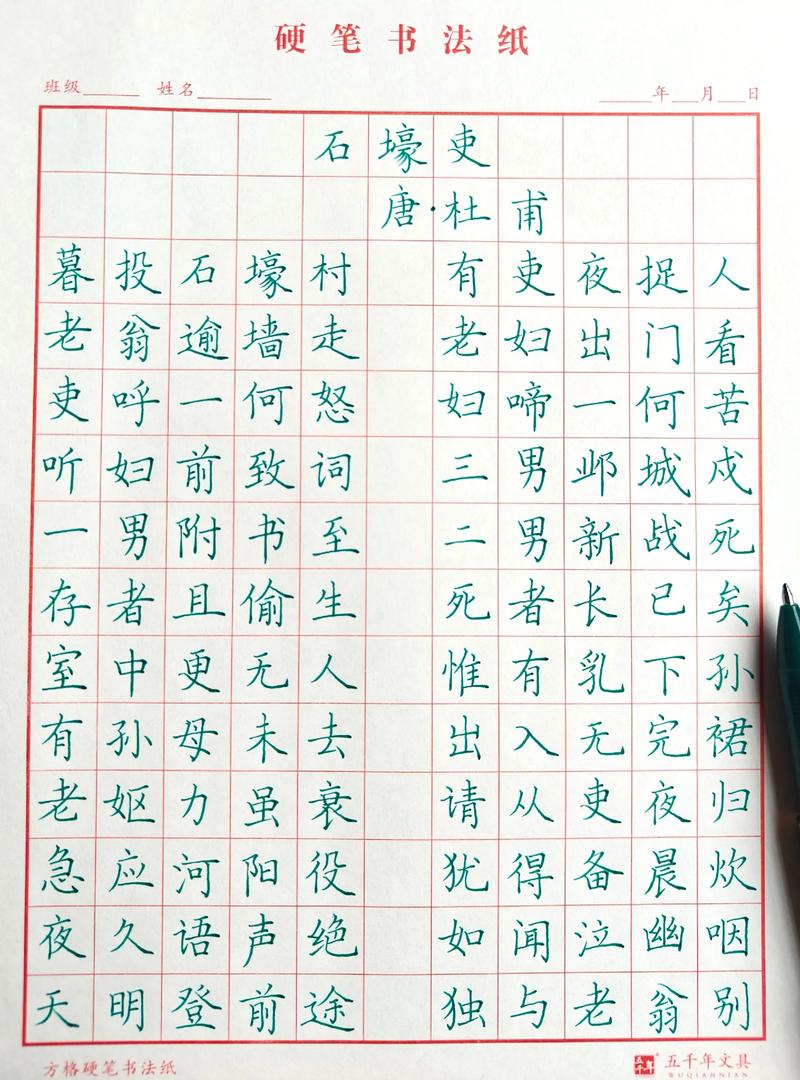 硬笔书法纸
班级 姓名 年 月 日
石壕吏
唐·杜甫
暮投石壕村 有吏夜捉人
老翁逾墙走 老妇出门看
吏呼一何怒 妇啼一何苦
听妇前致词 三男邺城戍
一男附书至 二男新战死
存者且偷生 死者长已矣
室中更无人 惟有乳下孙
有孙母未去 出入无完裙
老妪力虽衰 请从吏夜归
急应河阳役 犹得备晨炊
夜久语声绝 如闻泣幽咽
天明登前途 独与老翁别
方格硬笔书法纸 五千年 五千年文具
WUQIANNIAN